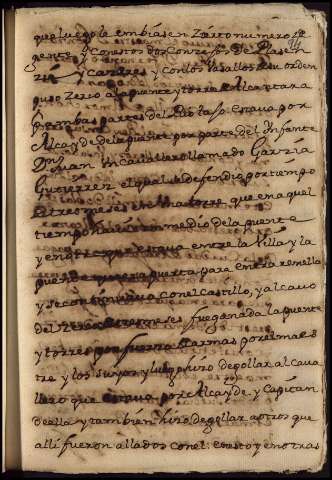 que luego le embiasen zierto numero de
gente y con estos dos Conzejos de Plasen
zia y Cazeres y con los Vasallos de su orden
puso zerco a la puente y torre de Alcantara
por ambas partes del Rio Taxo estava por
Alcayde de la puente por parte del Infante
Dn Juan un Caballero llamado Garzia
Gutierrez el qual la defendio por tiempo
de tres meses con una torre que en aquel
tiempo havia en medio de la puente
y en otra que estava entre la Villa y la
puente puerta para entrar en ella
y se continuava con el Castillo, y al cavo
del zerco de tres meses fue ganada la puente
y torres por fuerza de armas por el maes
tre y los suyos y luego hizo degollar al cava
llero que estava por Alcayde y Capitan
de alla y tambien hizo degollar a otros que
alli fueron allados con el: en esto y en otras